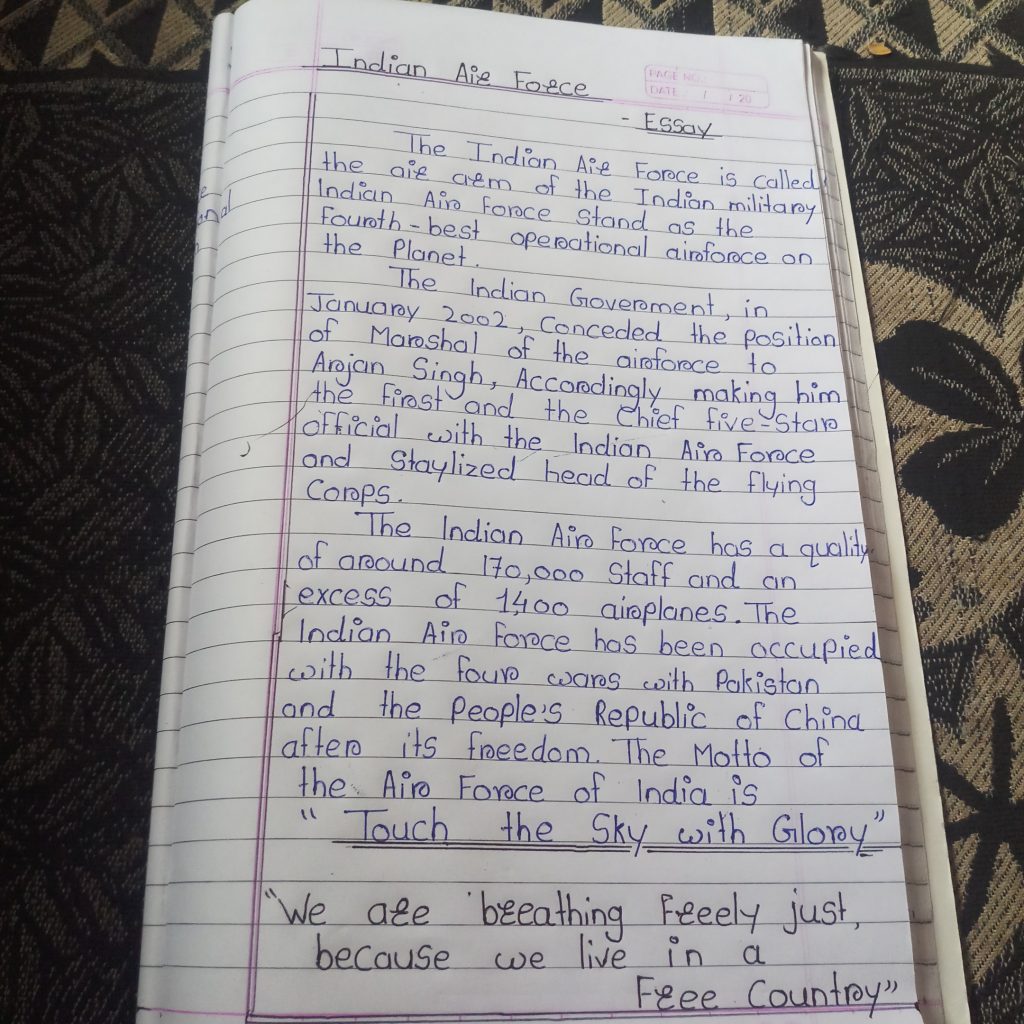 Indian Air Force
PAGE NO.:
DATE: / / 20
- Essay
The Indian Air Force is called
the air arm of the Indian military
Indian Air Force Stand as the
Fourth-best operational airforce on
the Planet.
The Indian Goverment, in
January 2002, Conceded the position
of Marshal of the airforce to
Arjan Singh, Accordingly making him
the First and the Chief five-Star
official with the Indian Air Force
and Staylized head of the flying
Corps.
The Indian Air Force has a quality
of around 170,000 Staff and an
excess of 1,400 airplanes. The
Indian Air Force has been occupied
with the four wars with Pakistan
and the People's Republic of China
after its freedom. The Motto of
the Air Force of India is
"Touch the Sky with Glory"
"We are breathing Freely just,
because we live in a
Free Country"